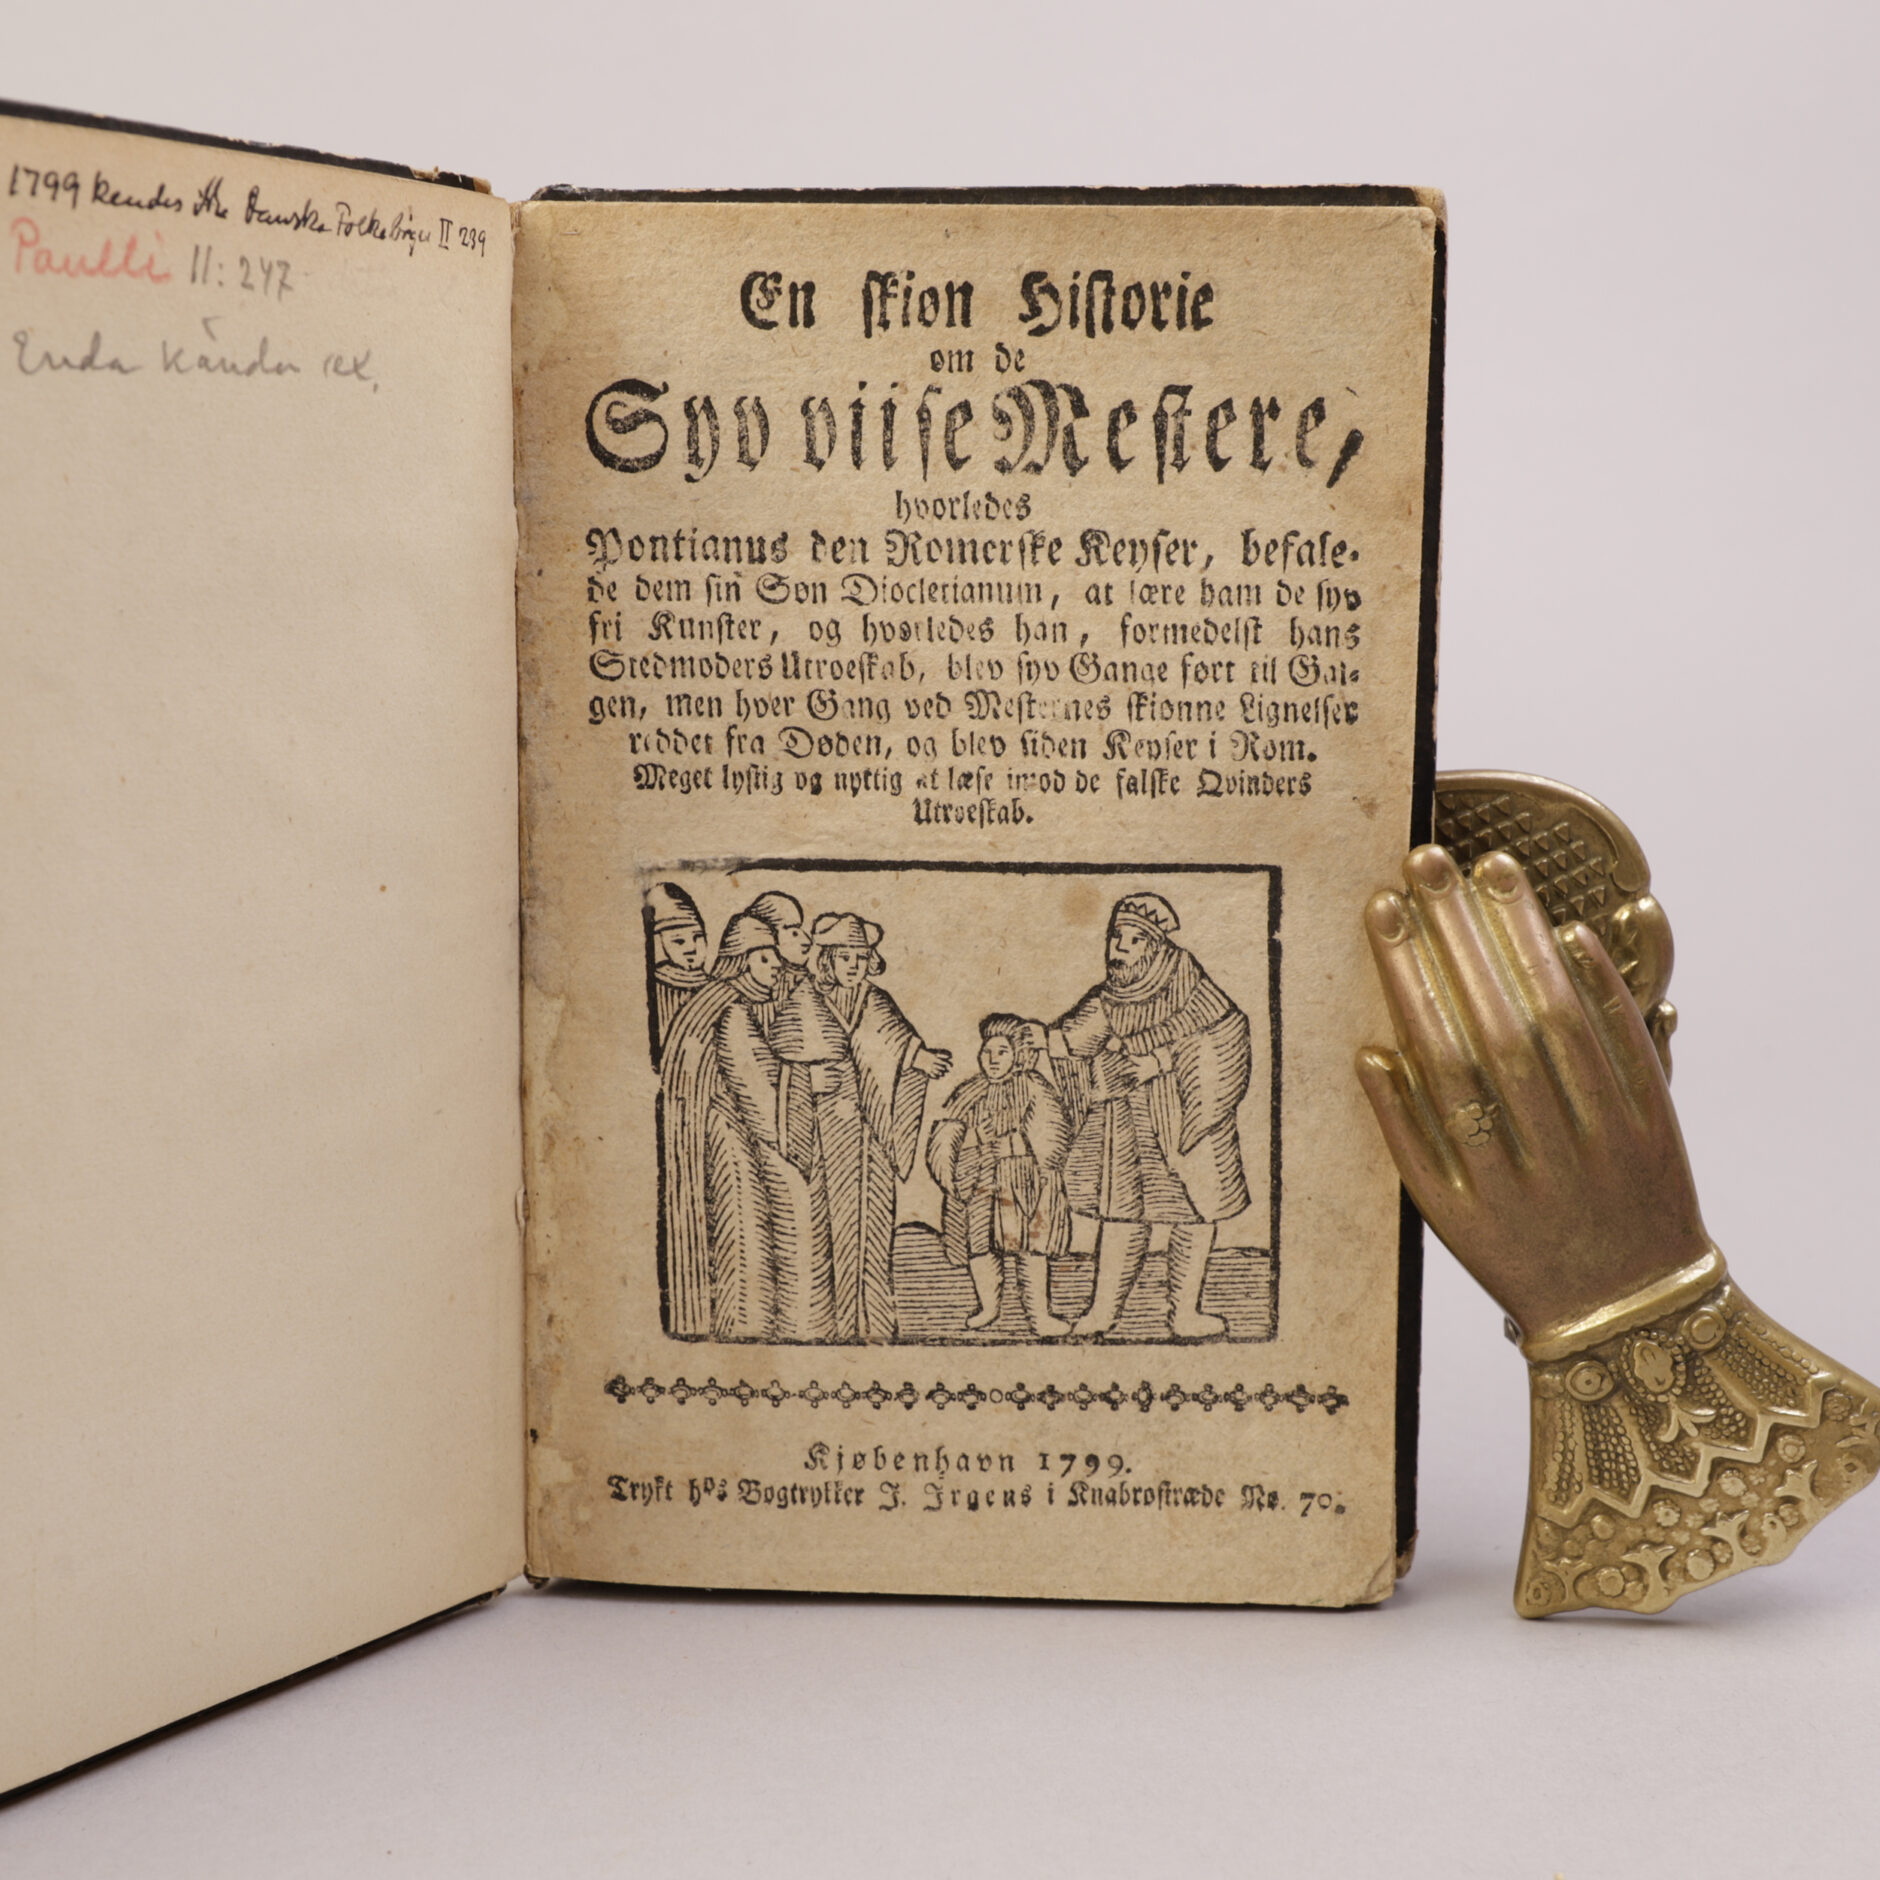 1799 kendes ikke Danske Folkebøger II 239
Paulli 11:247
Enda kända ex.
En skiøn Historie
om de
Syv viise Mestere,
hvorledes
Pontianus den Romerske Keyser, befale-
de dem sin Søn Diocletianum, at lære ham de syv
fri Kunster, og hvorledes han, formedelst hans
Stedmoders Utroeskab, blev syv Gange ført til Gal-
gen, men hver Gang ved Mesternes skiønne Lignelser
reddet fra Døden, og blev siden Keyser i Rom.
Meget lystig og nyttig at læse imod de falske Qvinders
Utroeskab.
Kjøbenhavn 1799.
Trykt hos Bogtrykker J. Jrgens i Knabrostræde No. 70.